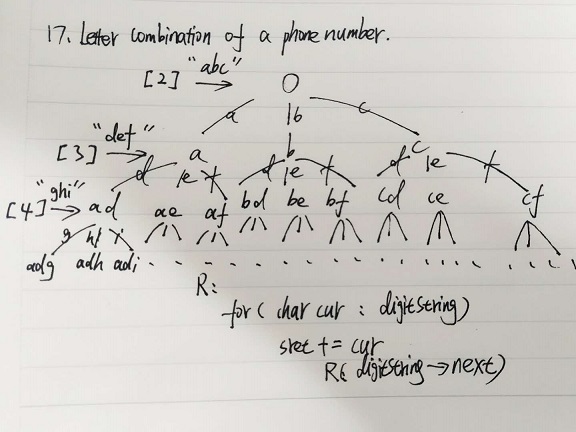 17. Letter combination of a phone number.
[2] "abc" O
a b c
[3] "def" a b c
d e f d e f d e f
[4] "ghi" ad ae af bd be bf cd ce cf
g h i
adg adh adi . . . . . . . . . . . . . . .
R:
for ( char cur : digitString )
sret += cur
R( digitString → next )